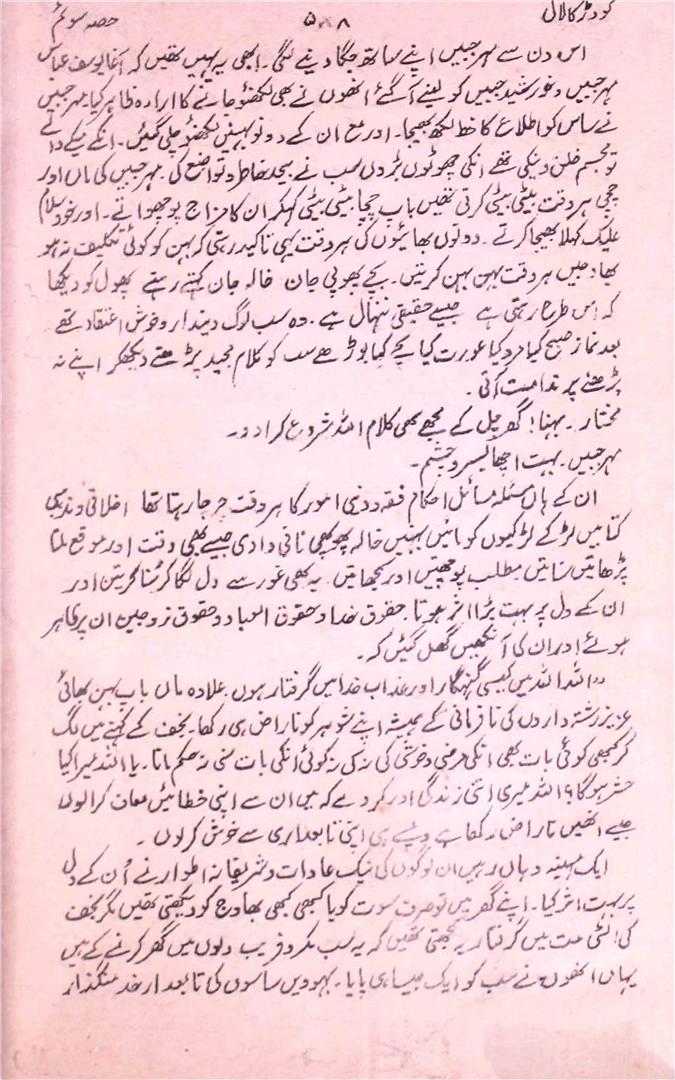 گودڑ کا لال ۵۸۸ حصہ سوئم
اس دن سے مہر جبیں اپنے ساتھ جگا دینے لگی۔ ابھی یہ یہیں تھیں کہ آغا یوسف عباس
مہر جبیں و خورشید جبیں کو لینے آگئے انھوں نے بھی لکھنؤ جانے کا ارادہ ظاہر کیا مہر جبیں
نے ساس کو اطلاع کا خط لکھ بھیجا۔ اور مع ان کے دونو بہنیں لکھنؤ چلی گئیں۔ انکے میکے والے
تو مجسم خلق و نیکی تھے انکی چھوٹوں بڑوں سب نے بیحد خاطر و تواضع کی مہر جبیں کی ماں اور
چچی ہر وقت بیٹی بیٹی کرتی تھیں باپ چچا بیٹی بیٹی کہکر ان کا مزاج پوچھواتے۔ اور خود سلام
علیک کہلا بھیجا کرتے۔ دونوں بھائیوں کی ہر وقت یہی تاکید رہتی کہ بہن کو کوئی تکلیف نہ ہو
بھاوجیں ہر وقت بہن بہن کرتیں۔ بچے پھوپی جان خالہ جان کہتے رہتے پھول کو دیکھا
کہ اس طرح رہتی ہے جیسے حقیقی ننہال ہے۔ وہ سب لوگ دیندار و خوش اعتقاد تھے
بعد نماز صبح کیا مرد کیا عورت کیا بچے کیا بوڑھے سب کو کلام مجید پڑھتے دیکھکر اپنے نہ
پڑھنے پر ندامت آتی۔
مختار۔ بہنا! گھر چل کے مجھے بھی کلام اللہ شروع کرا دو۔
مہر جبیں۔ بہت اچھا بسر و چشم۔
ان کے ہاں مسئلہ مسائل احکام فقہ و دینی امور کا ہر وقت چرچا رہتا تھا اخلاقی و مذہبی
کتابیں لڑکے لڑکیوں کو مائیں بہنیں خالہ پھوپھی نانی دادی جیسے بھی وقت اور موقع ملتا
پڑھاتیں سناتیں مطلب پوچھتیں اور سمجھاتیں یہ بھی غور سے دل لگا کر سنا کرتیں اور
ان کے دل پر بہت بڑا اثر ہوتا۔ حقوق خدا و حقوق العباد و حقوق زوجین ان پر ظاہر
ہوئے اور ان کی آنکھیں کھل گئیں کہ۔
"اللہ اللہ میں کیسی گنہگار اور عذاب خدا میں گرفتار ہوں علاوہ ماں باپ بہن بھائی
عزیز رشتہ داروں کی نافرمانی کے ہمیشہ اپنے شوہر کو ناراض ہی رکھا۔ نجف کے کہنے میں لگ
کر کبھی کوئی بات بھی انکی مرضی و خوشی کی نہ کی نہ کوئی انکی بات سنی نہ حکم مانا۔ یا اللہ میرا کیا
حشر ہوگا؟ اللہ میری اتنی زندگی اور کر دے کہ میں ان سے اپنی خطائیں معاف کرالوں
جیسے انھیں ناراض رکھا ہے ویسے ہی اپنی تابعداری سے خوش کرلوں۔
ایک مہینہ وہاں رہیں ان لوگوں کی نیک عادات و شریفانہ اطوار نے اُن کے دل
پر بہت اثر کیا۔ اپنے گھر میں تو صرف سوت کو یا کبھی کبھی بھاوج کو دیکھتی تھیں مگر نجف
کی الٹی مت میں گرفتار یہ سمجھتی تھیں کہ یہ سب مکر و فریب دلوں میں گھر کرنے کے ہیں
یہاں انھوں نے سب کو ایک جیسا ہی پایا۔ بہوویں ساسوں کی تابعدار خدمتگذار